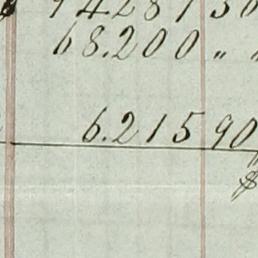 68.200 "
6.215 90
$